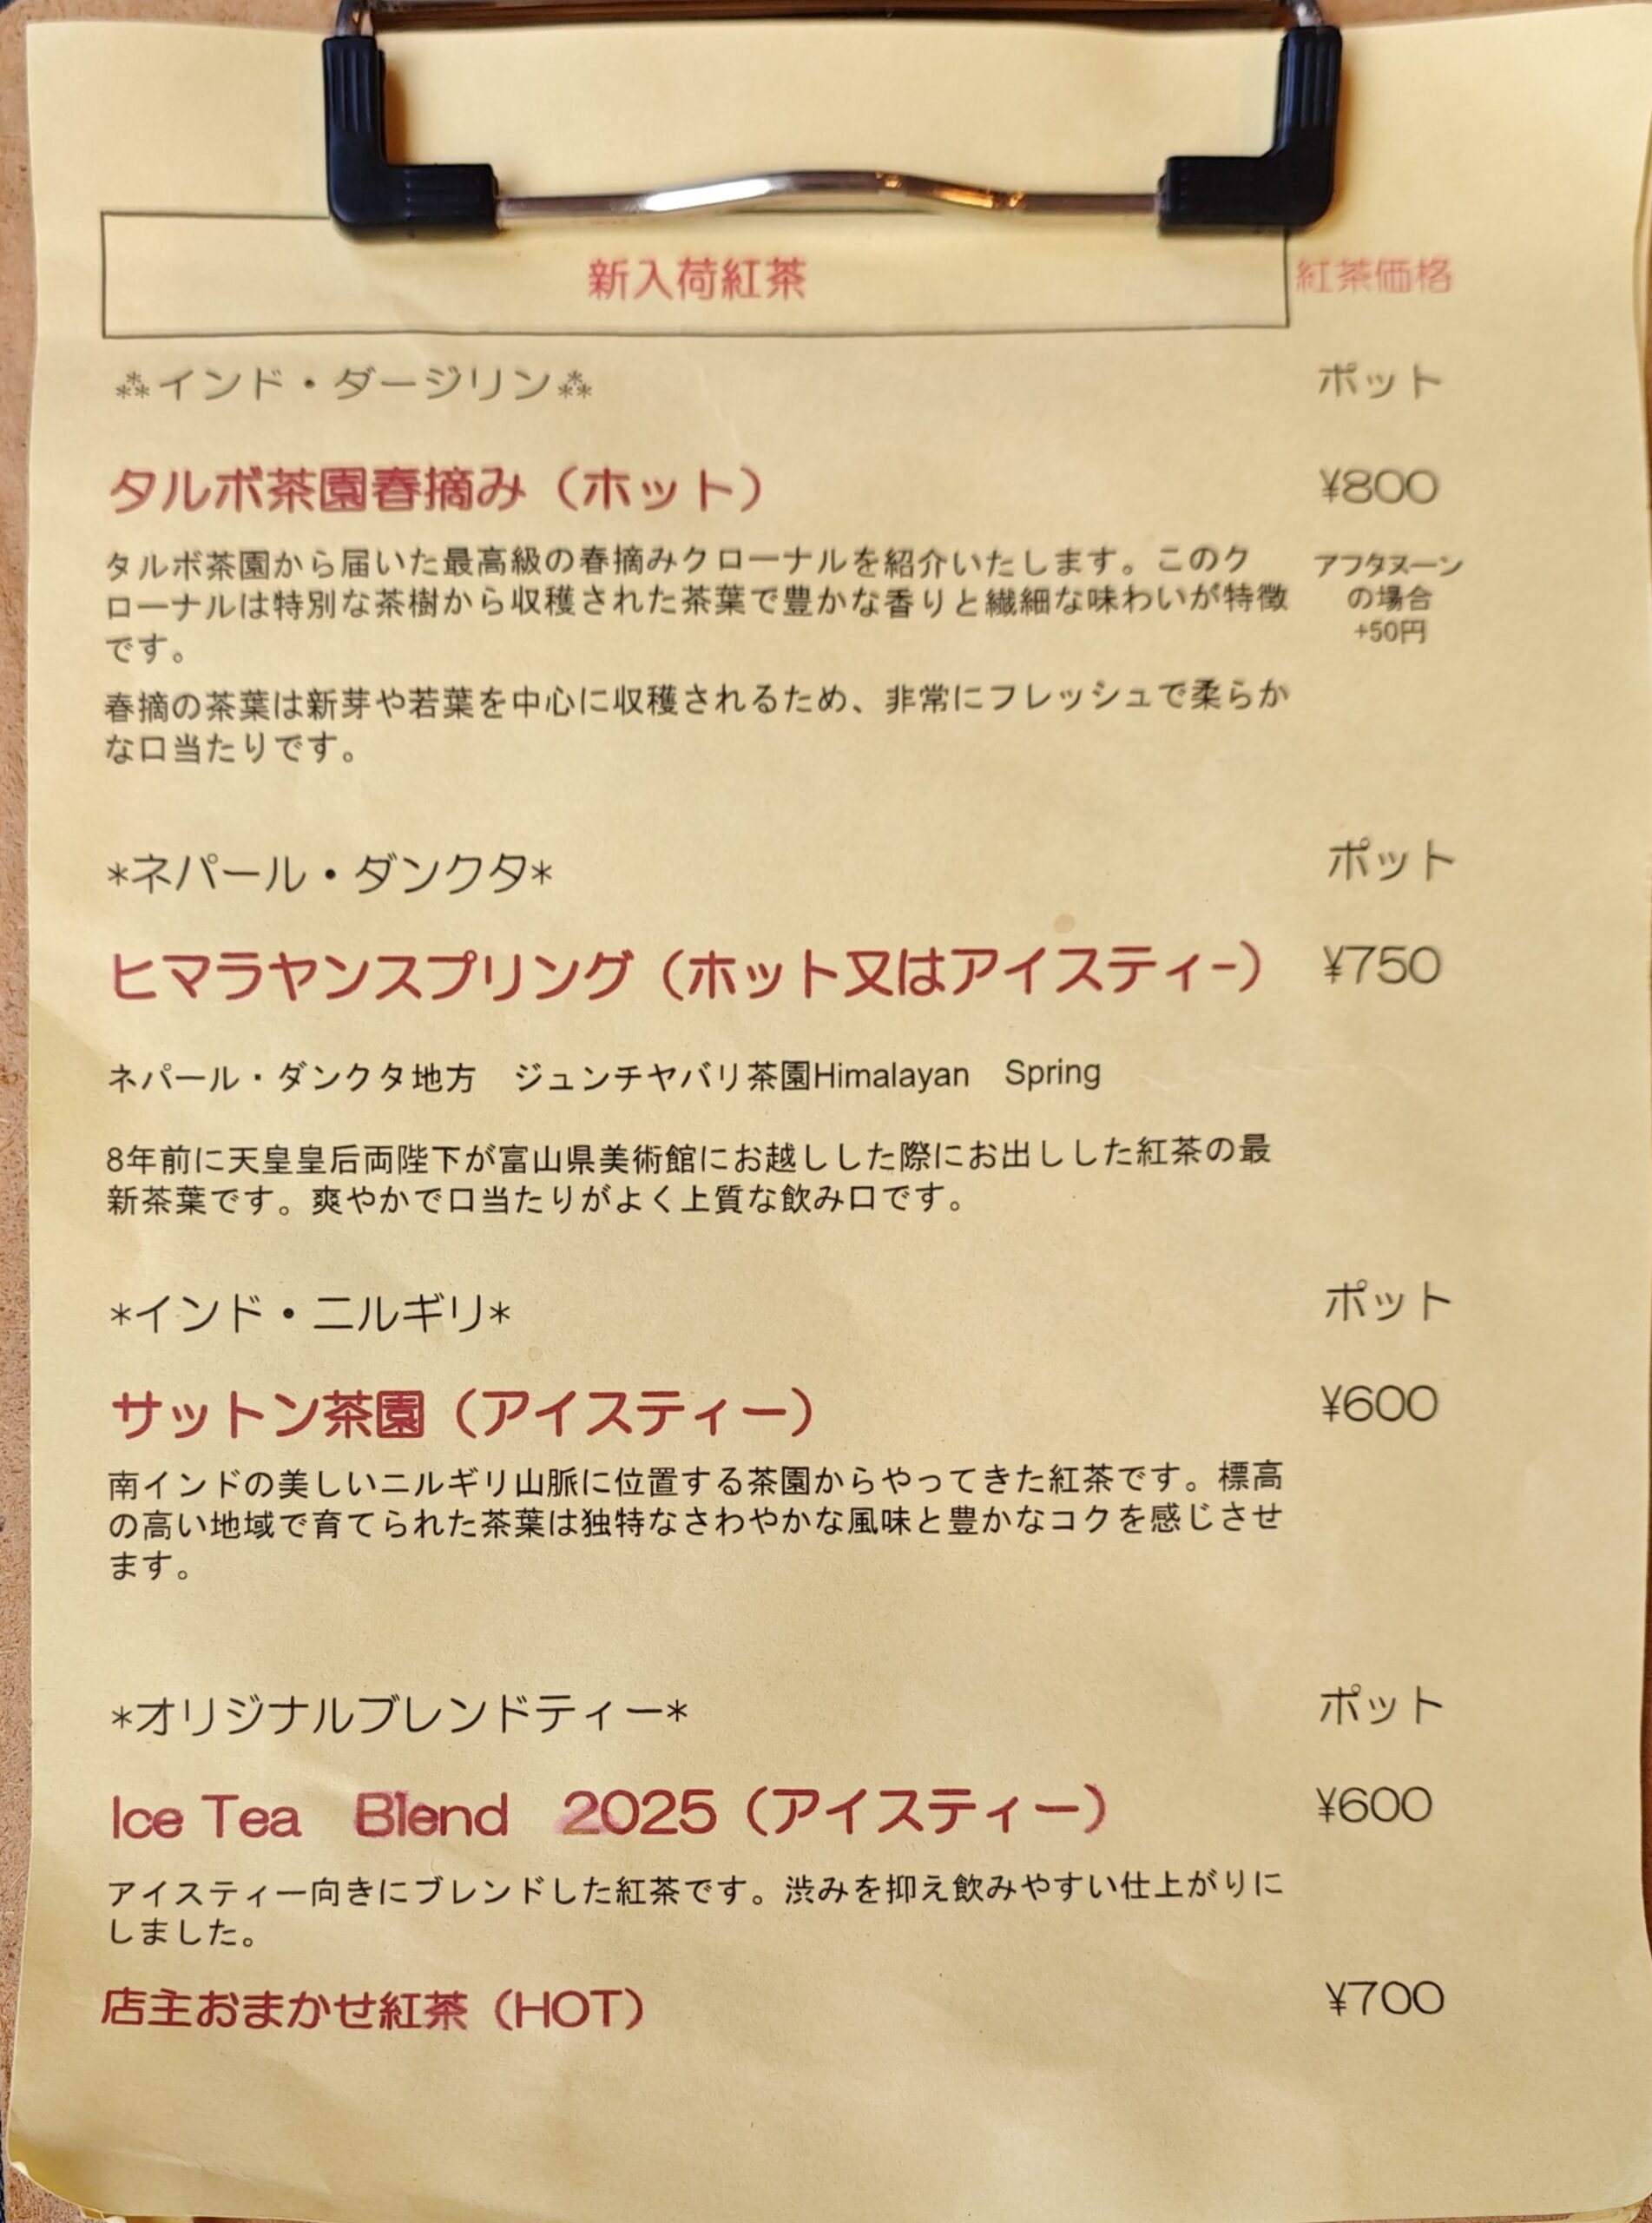 新入荷紅茶 紅茶価格
⁂インド・ダージリン⁂ ポット
タルボ茶園春摘み（ホット） ¥800
タルボ茶園から届いた最高級の春摘みクローナルを紹介いたします。このク
ローナルは特別な茶樹から収穫された茶葉で豊かな香りと繊細な味わいが特徴
です。
アフタヌーン
の場合
+50円
春摘の茶葉は新芽や若葉を中心に収穫されるため、非常にフレッシュで柔らか
な口当たりです。
*ネパール・ダンクタ* ポット
ヒマラヤンスプリング（ホット又はアイスティ-） ¥750
ネパール・ダンクタ地方　ジュンチヤバリ茶園Himalayan　Spring
8年前に天皇皇后両陛下が富山県美術館にお越しした際にお出しした紅茶の最
新茶葉です。爽やかで口当たりがよく上質な飲み口です。
*インド・ニルギリ* ポット
サットン茶園（アイスティー） ¥600
南インドの美しいニルギリ山脈に位置する茶園からやってきた紅茶です。標高
の高い地域で育てられた茶葉は独特なさわやかな風味と豊かなコクを感じさせ
ます。
*オリジナルブレンドティー* ポット
Ice Tea　Blend　2025（アイスティー） ¥600
アイスティー向きにブレンドした紅茶です。渋みを抑え飲みやすい仕上がりに
しました。
店主おまかせ紅茶（HOT） ¥700